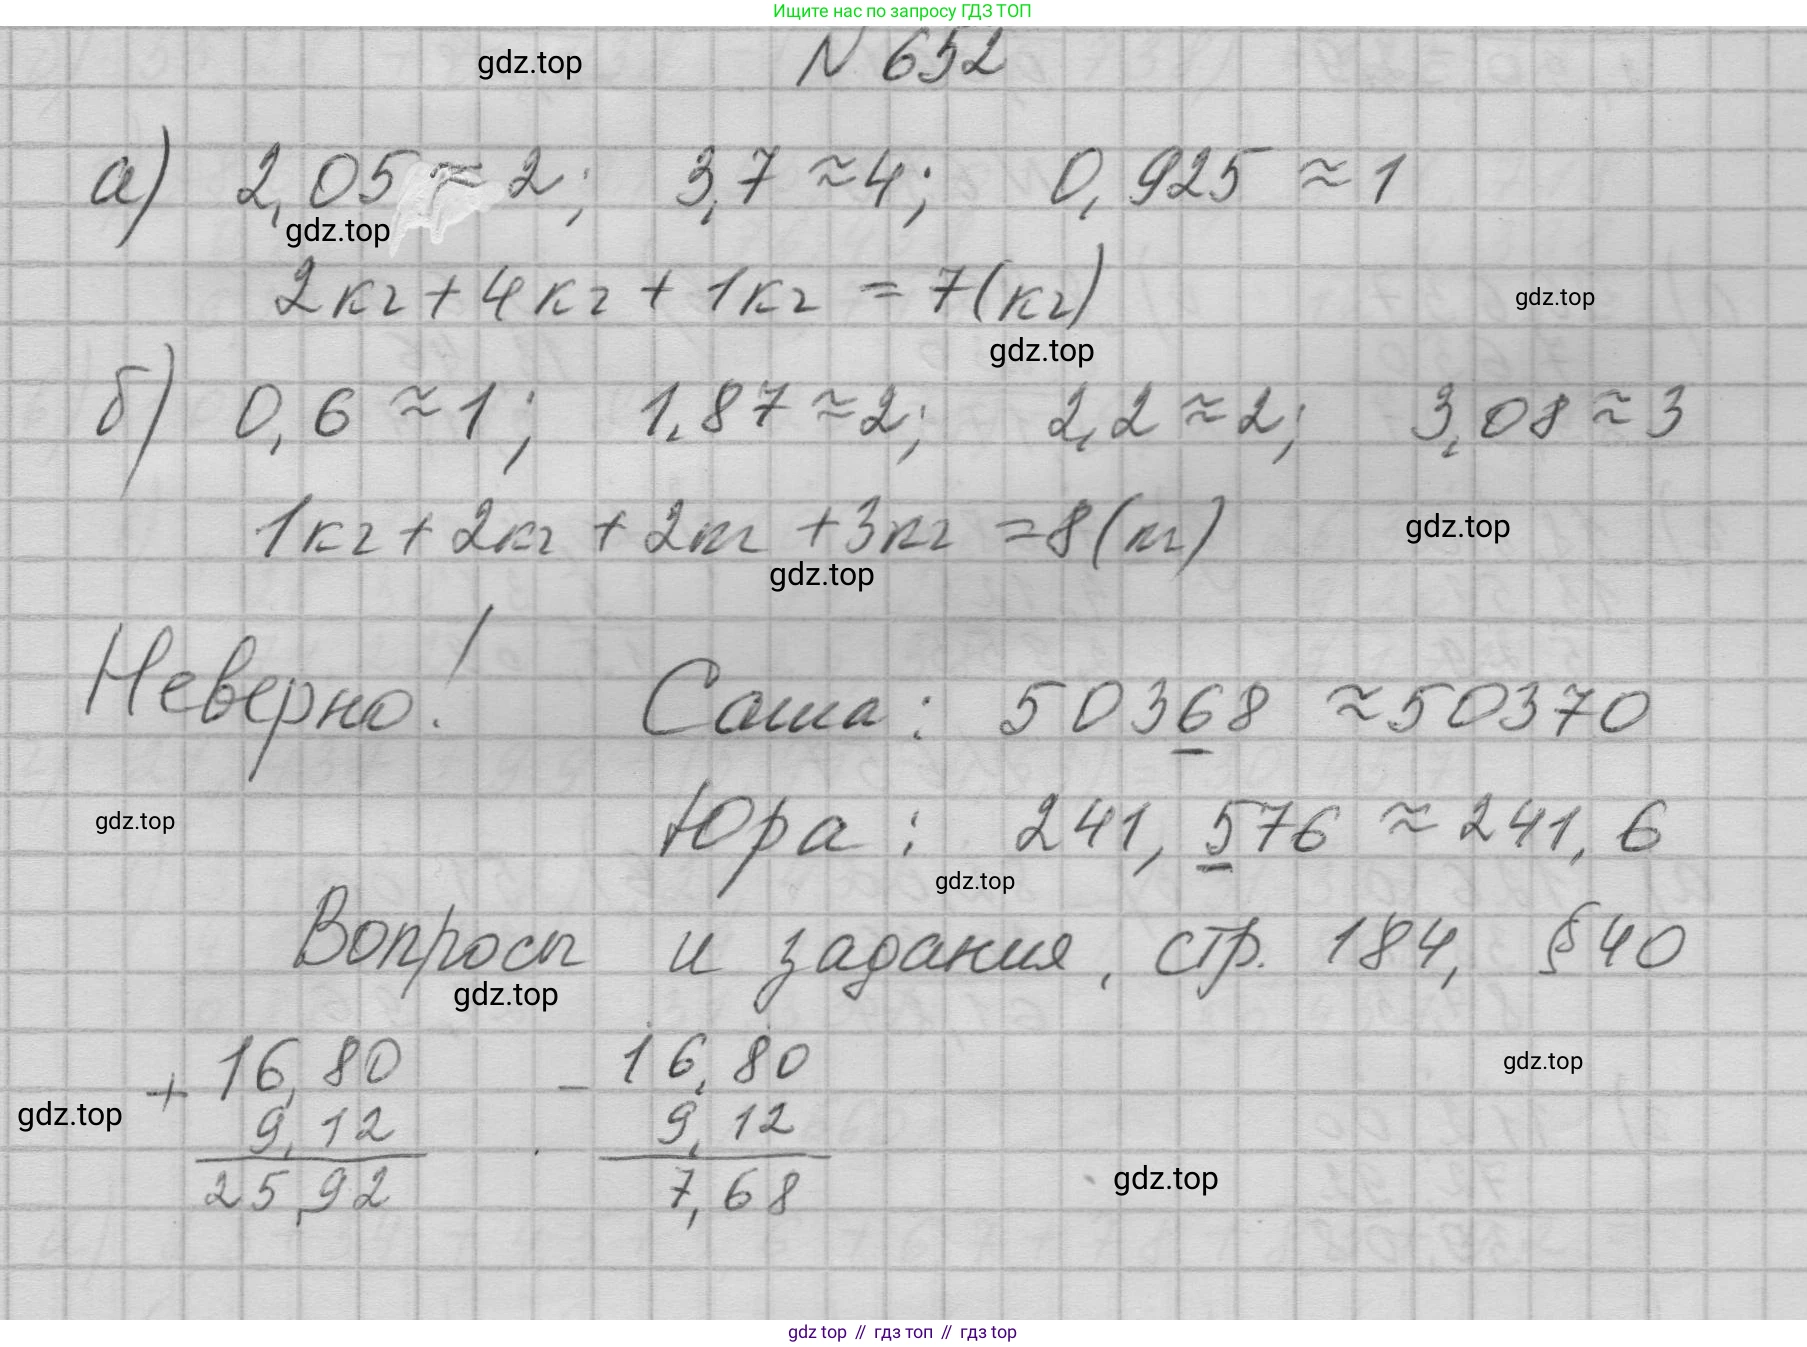 Ищите нас по запросу ГДЗ ТОП
gdz.top N 652
а) 2,05 ≈ 2; 3,7 ≈ 4; 0,925 ≈ 1
gdz.top
2кг + 4кг + 1кг = 7(кг) gdz.top
gdz.top
б) 0,6 ≈ 1; 1,87 ≈ 2; 2,2 ≈ 2; 3,08 ≈ 3
1кг + 2кг + 2кг + 3кг = 8(кг) gdz.top
gdz.top
Неверно! Саша: 50368 ≈ 50370
gdz.top Юра: 241,576 ≈ 241,6
gdz.top
Вопросы и задания, стр. 184, §40
gdz.top
+ 16,80 − 16,80 gdz.top
gdz.top 9,12 9,12
25,92 7,68 gdz.top
gdz top // гдз топ // гдз top